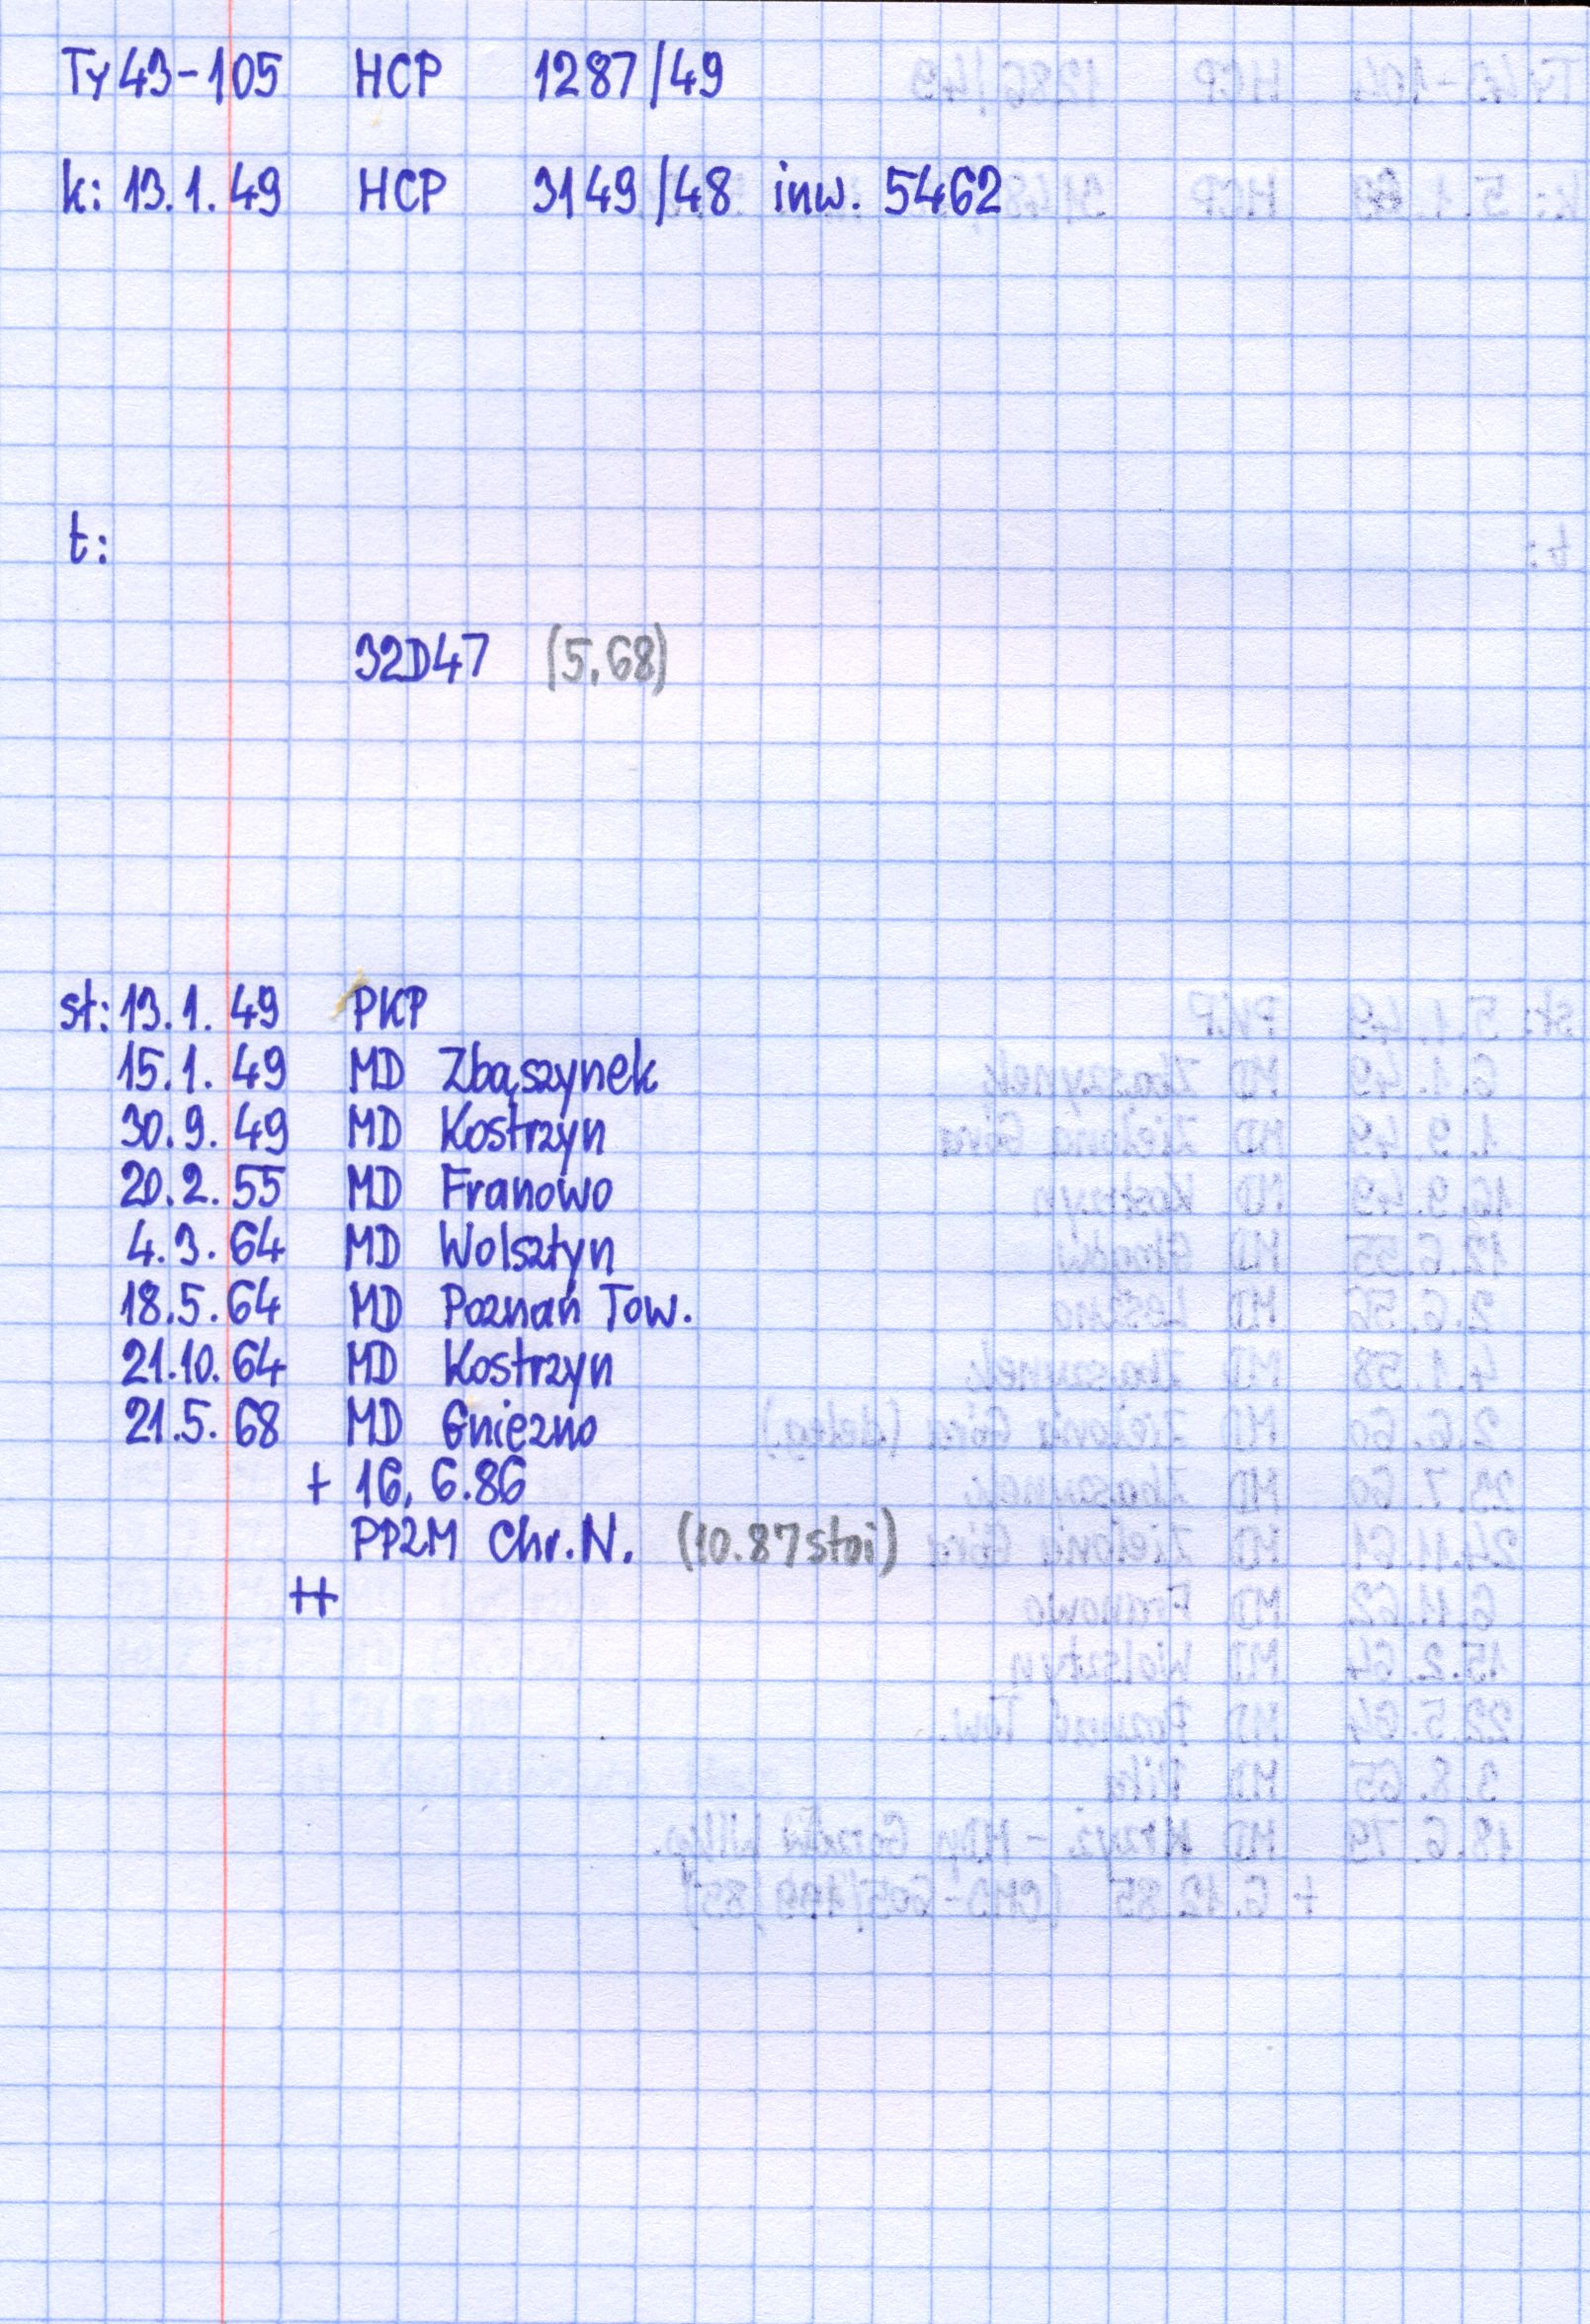 Ty43-105 HCP 1287/49
k: 13.1.49 HCP 3149/48 inw. 5462
t:
32D47 (5.68)
st: 13.1.49 PKP
15.1.49 MD Zbąszynek
30.9.49 MD Kostrzyn
20.2.55 MD Franowo
4.3.64 MD Wolsztyn
18.5.64 MD Poznań Tow.
21.10.64 MD Kostrzyn
21.5.68 MD Gniezno
+ 16.6.86
PPZM Chr.N. (10.87 stoi)
++